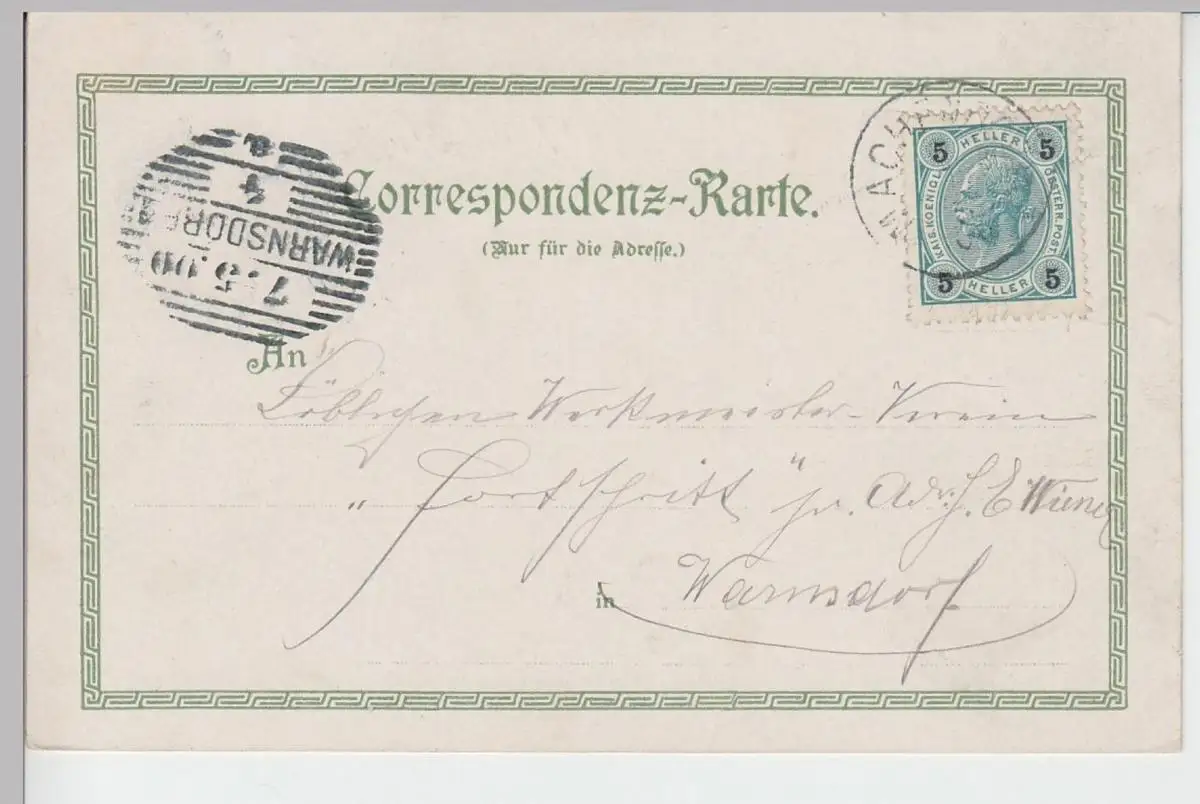 Correspondenz-Karte.
(Nur für die Adresse.)
MACHEN
5 HELLER 5
KAIS. KOENIGL. ÖSTERR. POST
5 HELLER 5
WARNSDORF
7 5 00
An
Löblichen Werkmeister-Verein
„Fortschritt"
in Warnsdorf